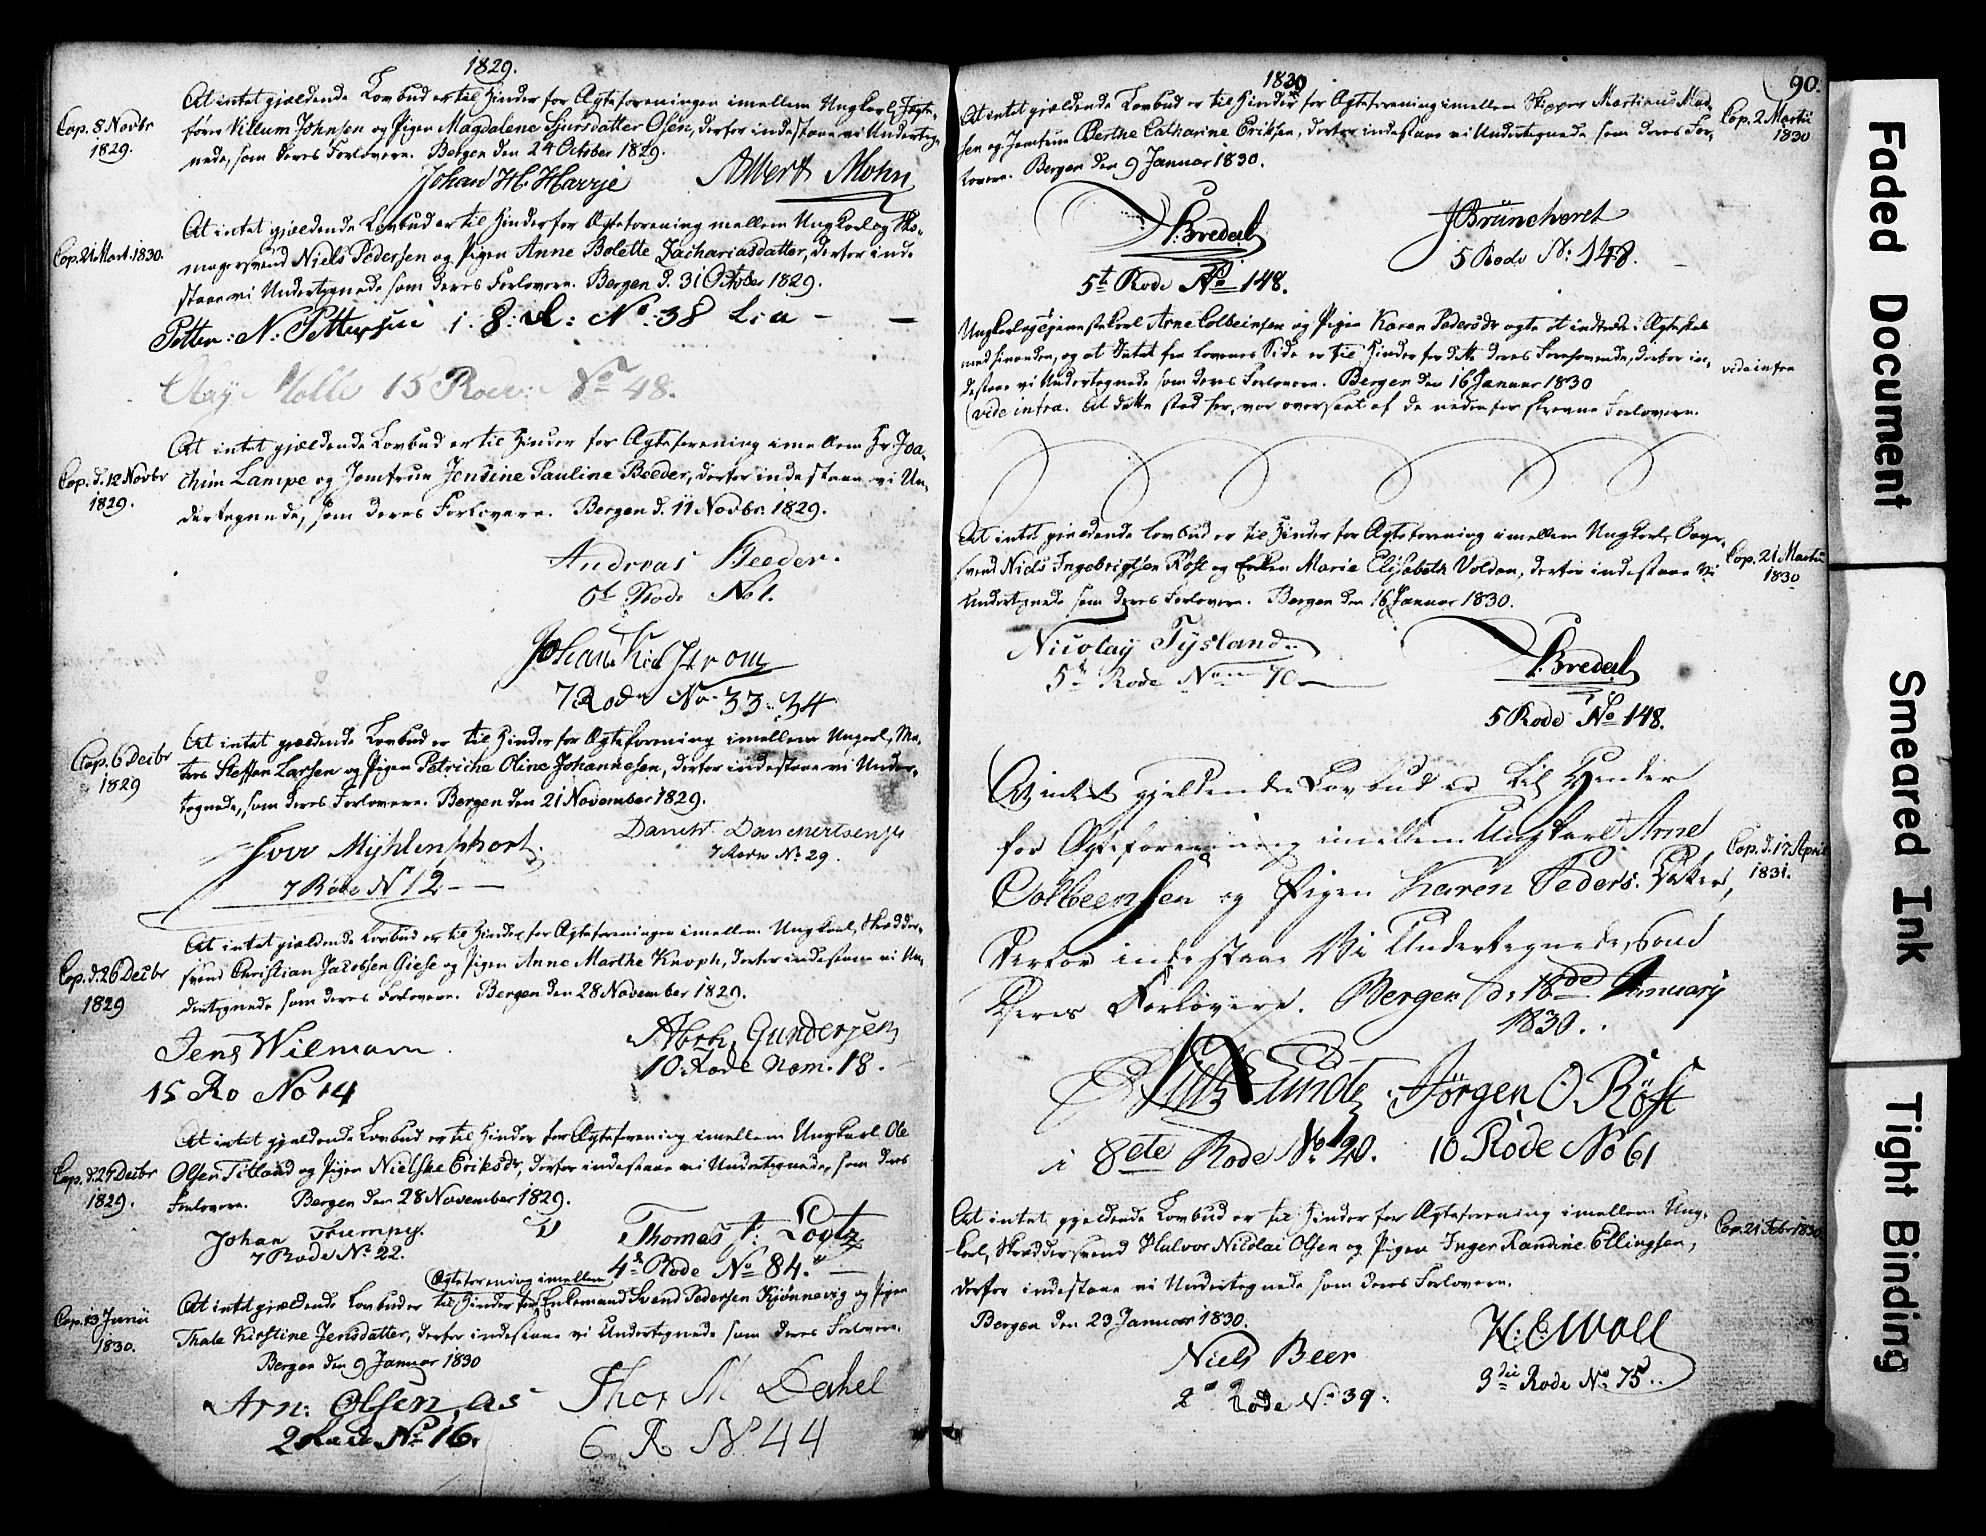 1829.
Cop. 8 Novbr
1829.
At intet gjældende Lovbud er til Hinder for Ægteforeningen imellem Ungkarl, Jægte-
fører Villum Johnsen og Pigen Magdalene Sjursdatter Osen, derfor indestaae vi Underteg-
nede, som deres Forlovere. Bergen den 24 October 1829.
Johan H. Harrje Albert Mohn
Cop. 21 Mart. 1830.
At intet gjældende Lovbud er til Hinder for Ægteforening mellem Ungkarl og Sko-
magersvend Niels Pedersen og Pigen Anne Bolette Zachariasdatter, derfor inde-
staae vi Undertegnede som deres Forlovere. Bergen d. 31 October 1829.
Petter: N: Pettersen i 8: R: No: 38 L: a
15 Rode: No 48.
Cop. d. 12 Novbr
1829.
At intet gjældende Lovbud er til Hinder for Ægteforening imellem Hr. Joa-
chim Lampe og Jomfrue Jensine Pauline Beeder, derfor indestaae vi Un-
dertegnede, som deres Forlovere. Bergen d. 11 Novbr. 1829.
Andreas Beeder.
6t Rode No 1.
7 Rode No. 33-34
Cop. 6 Decbr
1829
At intet gjældende Lovbud er til Hinder for Ægteforening imellem Ungkarl, Ma-
tros Steffen Larsen og Pigen Petriche Oline Johannesen, derfor indestaae vi Under-
tegnede, som deres Forlovere. Bergen den 21 November 1829.
Iver Myhlenphort.
7 Rode No 12
Danckt. Danckertsen
7 Rode No 29.
Cop. d. 26 Decbr
1829
At intet gjældende Lovbud er til Hinder for Ægteforeningen imellem Ungkarl, Skrædder-
svend Christian Jacobsen Giese og Pigen Anne Marthe Knoph, derfor indestaae vi Un-
dertegnede som deres Forlovere. Bergen den 28 November 1829.
Jens Wilmann
15 Ro No 14
Abrh. Gundersen
10 Rode Nom. 18.
Cop. d. 26 Decbr
1829.
At intet gjældende Lovbud er til Hinder for Ægteforening imellem Ungkarl Ole
Olsen Titland og Pigen Nielske Eriksdr, derfor indestaae vi Undertegnede, som deres
Forlovere. Bergen den 28 November 1829.
Johan Trumpy.
7 Rode No 22.
Thomas F: Lootz
4de Rode No 84.
Cop. 13 Junii
1830.
Ægteforening imellem
At intet gjældende Lovbud er til Hinder for Enkemand Svend Pedersen Kjønnevig og Pigen
Thale Kirstine Jensdatter, derfor indestaae vi Undertegnede som deres Forlovere.
Bergen den 9 Januar 1830
Arn: Olsen, as
2 Rode No 16.
Thor M Dahel
6 R No 44
1830
90.
Cop. 2 Martii
1830
At intet gjældende Lovbud er til Hinder for Ægteforening imellem Skipper Martinus Mad-
sen og Jomfrue Berthe Catharine Eriksen, derfor indestaae vi Undertegnede som deres For-
lovere. Bergen den 9 Januar 1830.
Bredal
5t Rode No 148.
JBrunchorst
5 Rode No: 148.
Ungkarl og Tjenestekarl Arne Colbeinsen og Pigen Karen Pedersdr agte at indtræde i Ægteskab
med hinanden, og at Intet fra Lovenes Side er til Hinder for dette deres Forehavende, derfor in-
destaae vi Undertegnede som deres Forlovere. Bergen den 16 Januar 1830
vide infra
(vide infra. At dette stod her, var overseet af de nedenfor skrevne Forlovere.
At intet gjældende Lovbud er til Hinder for Ægteforening imellem Ungkarl, Bager-
svend Niels Ingebrigtsen Röst og Enken Marie Elisabeth Voldan, derfor indestaae vi
Undertegnede som deres Forlovere. Bergen den 16 Januar 1830.
Cop. 21 Martii
1830
Nicolay Tysland
5te Rode Nom 70
Bredal
5 Rode No 148.
At intet gjeldende Lovbud er til Hinder
for Ægteforenning imellem Ungkarl Arne
Colbeensen og Pigen Karen Peders Datter,
Derfor indestaae Vi Undertegnede, som
Deres Forlovere. Bergen d: 18de January
1830.
Cop. d. 17 April
1831.
Sunde
i 8de Rode No 120.
Jørgen O Röst
10 Rode No 61
At intet gjeldende Lovbud er til Hinder for Ægteforening imellem Ung-
karl, Skræddersvend Halvor Nicolai Olsen og Pigen Inger Randine Ellingsen,
derfor indestaae vi Undertegnede som deres Forlovere.
Bergen den 23 Januar 1830.
Cop. 21 Febr 1830
Niels Beer
2 Rode No 39.
H. E. Woll
3die Rode No 75.
Faded Document
Smeared Ink
Tight Binding